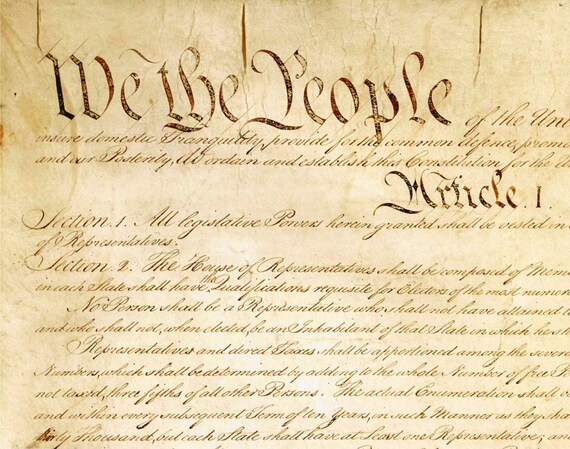 We the People of the Uni
insure domestic Tranquility, provide for the common defence, promo
and our Posterity, do ordain and establish this Constitution for the U
Article. I.
Section. 1. All legislative Powers herein granted shall be vested in a
of Representatives.
Section. 2. The House of Representatives shall be composed of Mem
in each State shall have the Qualifications requisite for Electors of the most numero
No Person shall be a Representative who shall not have attained t
and who shall not, when elected, be an Inhabitant of that State in which he s
Representatives and direct Taxes shall be apportioned among the several
Numbers, which shall be determined by adding to the whole Number of free P
not taxed, three fifths of all other Persons. The actual Enumeration shall
and within every subsequent Term of ten Years, in such Manner as they sha
thirty Thousand, but each State shall have at Least one Representative; and